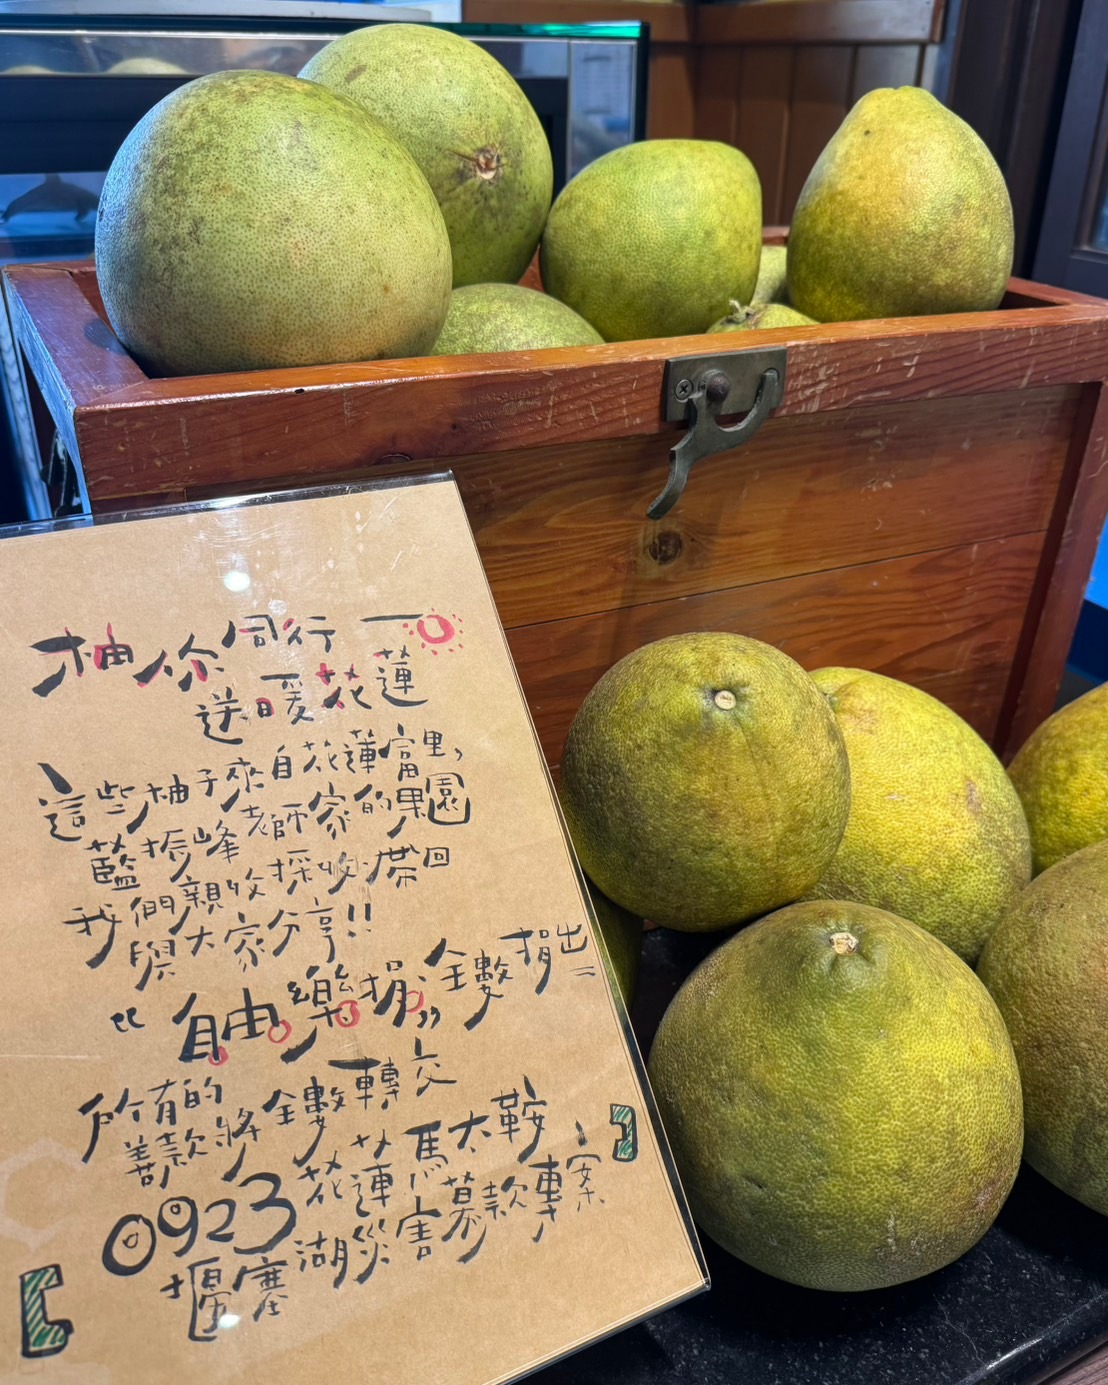 柚你同行一
送暖花蓮
這些柚子來自花蓮富里,
藍振峰老師家的果園
我們親收採收帶回
與大家分享!!
“自由樂捐”全數捐出
所有的善款將全數轉交
0923花蓮馬太鞍
堰塞湖災害募款專案